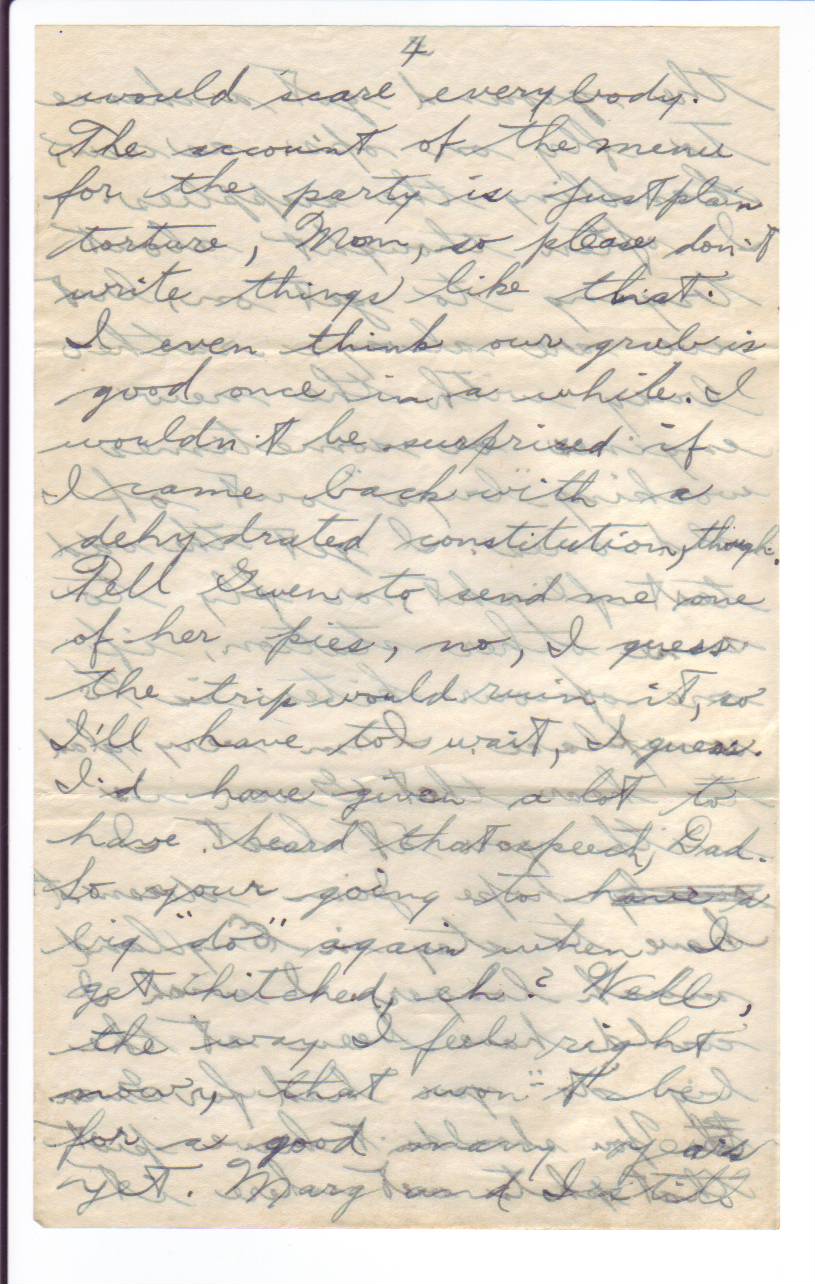 4
would scare everybody.
The account of the menu
for the party is just plain
torture, Mom, so please don't
write things like that.
I even think our grub is
good once in a while. I
wouldn't be surprised if
I came back with a
dehydrated constitution, though.
Tell Gwen to send me one
of her pies, no, I guess
the trip would ruin it, so
I'll have to wait, I guess.
I'd have given a lot to
have heard that speech, Dad.
So your going to have a
big "do" again when I
get hitched, eh? Well,
the way I feel right
now, that won't be
for a good many years
yet. Marg and I still